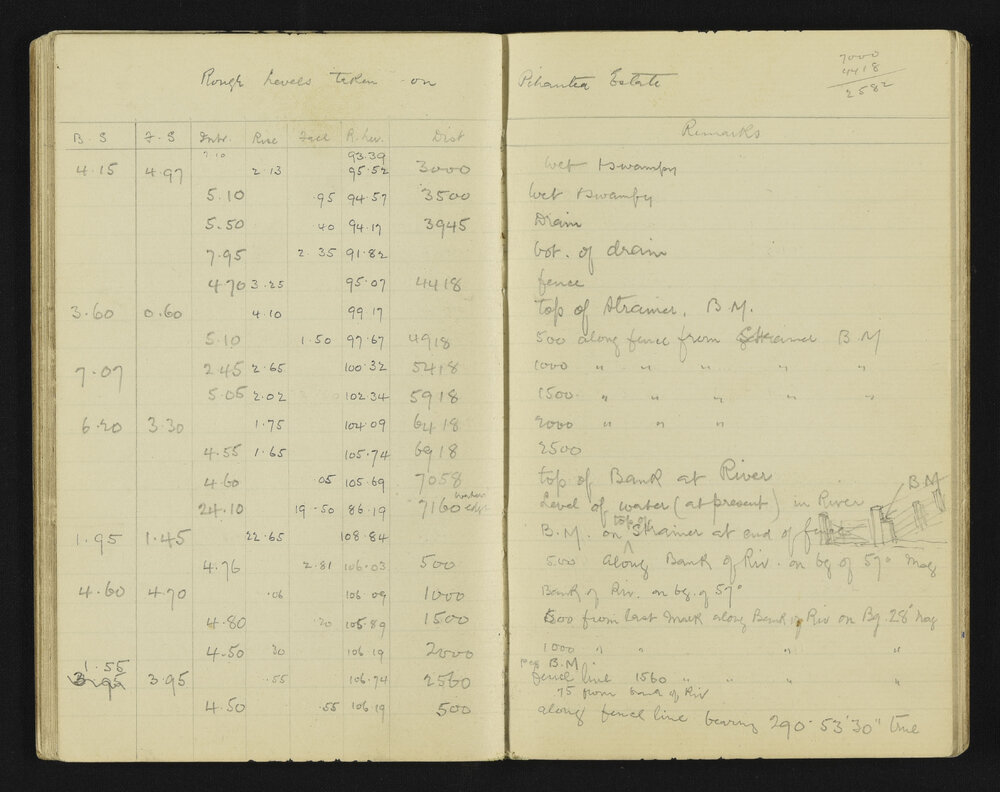 Rough Levels taken on Pihautea Estate
7000
4418
2582
B.S F.S Intr. Rise Fall R.Lev. Dist Remarks
7.10 93.39
4.15 4.97 2.13 95.52 3000 wet + swampy
5.10 .95 94.57 3500 wet + swampy
5.50 40 94.17 3945 Drain
7.95 2.35 91.82 bot. of drain
4.70 3.25 95.07 4418 fence
3.60 0.60 4.10 99.17 top of Strainer. B.M.
5.10 1.50 97.67 4918 500 along fence from Strainer B.M
7.07 2.45 2.65 100.32 5418 1000 " " " " "
5.05 2.02 102.34 5918 1500 " " " " "
6.20 3.30 1.75 104.09 6418 2000 " " "
4.55 1.65 105.74 6918 2500
4.60 .05 105.69 7058 top of Bank at River
24.10 19.50 86.19 7160 water edge Level of water (at present) in River
B.M
1.95 1.45 22.65 108.84 B.M. on top of Strainer at end of fence
4.76 2.81 106.03 500 500 along Bank of Riv. on bg of 57° Mag
4.60 4.70 .06 106.09 1000 Bank of Riv. on bg. of 57°
4.80 .20 105.89 1500 500 from last mark along Bank of Riv on Bg. 28° Mag
4.50 30 106.19 2000 1000 " " " "
1.55 Peg B.M.
3.95 3.95 .55 106.74 2560 Fence line 1560 " " " "
75 from bank of Riv
4.50 .55 106.19 500 along fence line bearing 290° 53' 30" true